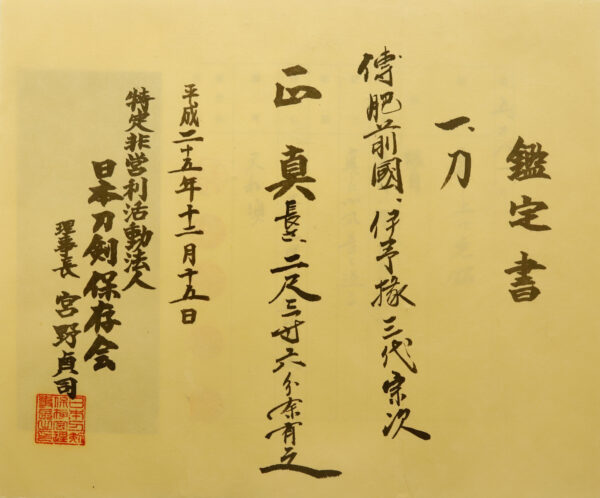 鑑定書
一、刀
傳肥前國、伊予掾三代宗次
正真 長さ、二尺三寸六分余有之
平成二十五年十二月十五日
特定非営利活動法人
日本刀剣保存会
理事長 宮野貞司